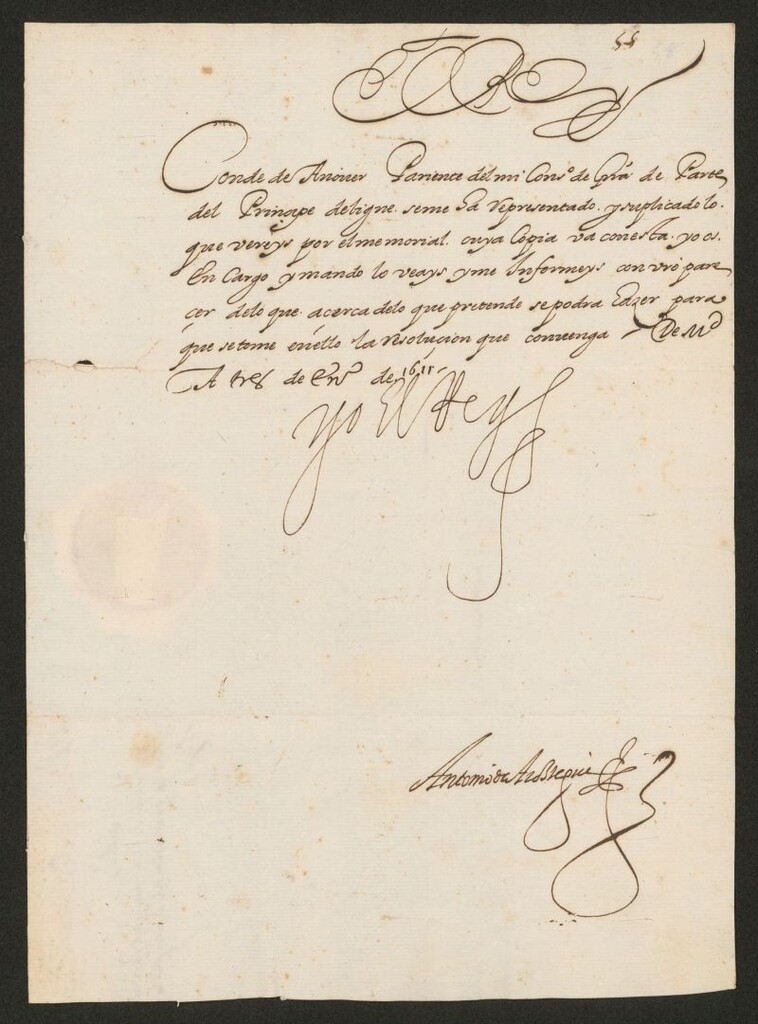 55
El Rey
Conde de Añover Pariente del mi Cons.º de Gra de Parte
del Principe de ligne. se me ha representado. y suplicado lo.
que vereys por el memorial. cuya Copia va con esta. yo os.
En Cargo y mando lo veays y me Informeys con vro pare
cer de lo que. acerca de lo que pretende se podra hazer para
que se tome en ello la resolucion que convenga De Md
A tres de Enº de 1611
yo El Rey
Antonio de Arostegui